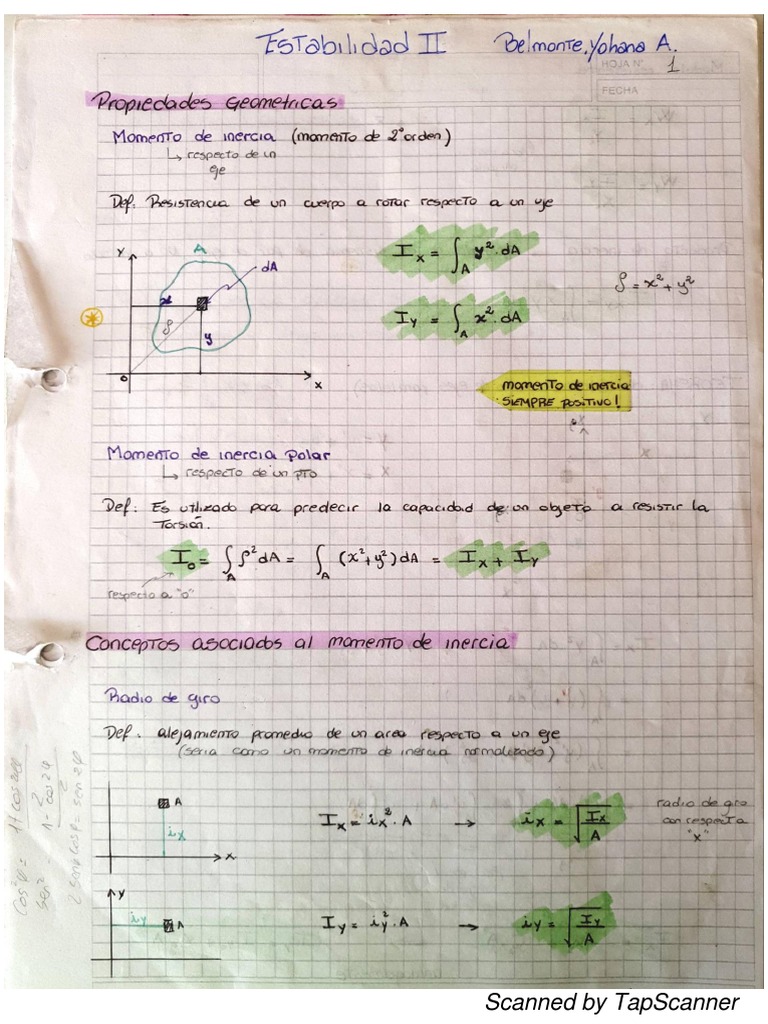 Estabilidad II Belmonte, Yohana A.
HOJA N° 1
FECHA
Propiedades Geometricas
Momento de inercia (momento de 2° orden)
↳ respecto de un
eje
Def: Resistencia de un cuerpo a rotar respecto a un eje
y
A
dA
x
ρ
y
o
x
I_x = ∫_A y². dA
ρ = x² + y²
I_y = ∫_A x². dA
momento de inercia
SIEMPRE POSITIVO!
Momento de inercia polar
↳ respecto de un pto
Def: Es utilizado para predecir la capacidad de un objeto a resistir la
Torsión.
I_o = ∫_A ρ² dA = ∫_A (x² + y²) dA = I_x + I_y
respecto a "o"
Conceptos asociados al momento de inercia
Radio de giro
Def. alejamiento promedio de un area respecto a un eje
(seria como un momento de inercia normalizado)
A
i_x
x
I_x = i_x² . A → i_x = √(I_x / A)
radio de giro
con respecto a
"x"
y
i_y
A
I_y = i_y² . A → i_y = √(I_y / A)
Scanned by TapScanner